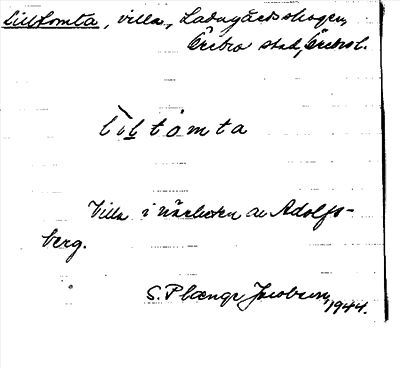 Lilltomta, villa, Ladugårdsskogen,
Örebro stad, Örebro l.
lìltòmta
Villa i närheten av Adolfs-
berg.
S. Plænge Jacobson,
1944.